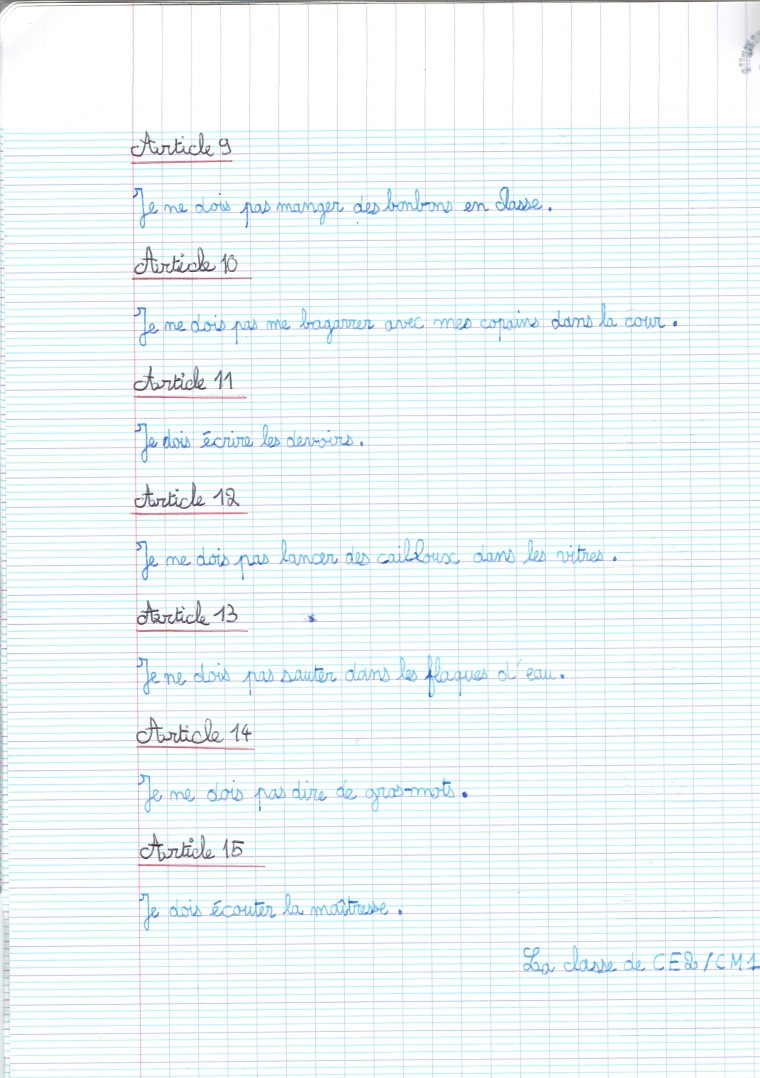 Article 9
Je ne dois pas manger des bonbons en classe.
Article 10
Je ne dois pas me bagarrer avec mes copains dans la cour.
Article 11
Je dois écrire les devoirs.
Article 12
Je ne dois pas lancer des cailloux dans les vitres.
Article 13
Je ne dois pas sauter dans les flaques d'eau.
Article 14
Je ne dois pas dire de gros-mots.
Article 15
Je dois écouter la maîtresse.
La classe de CE2/CM1